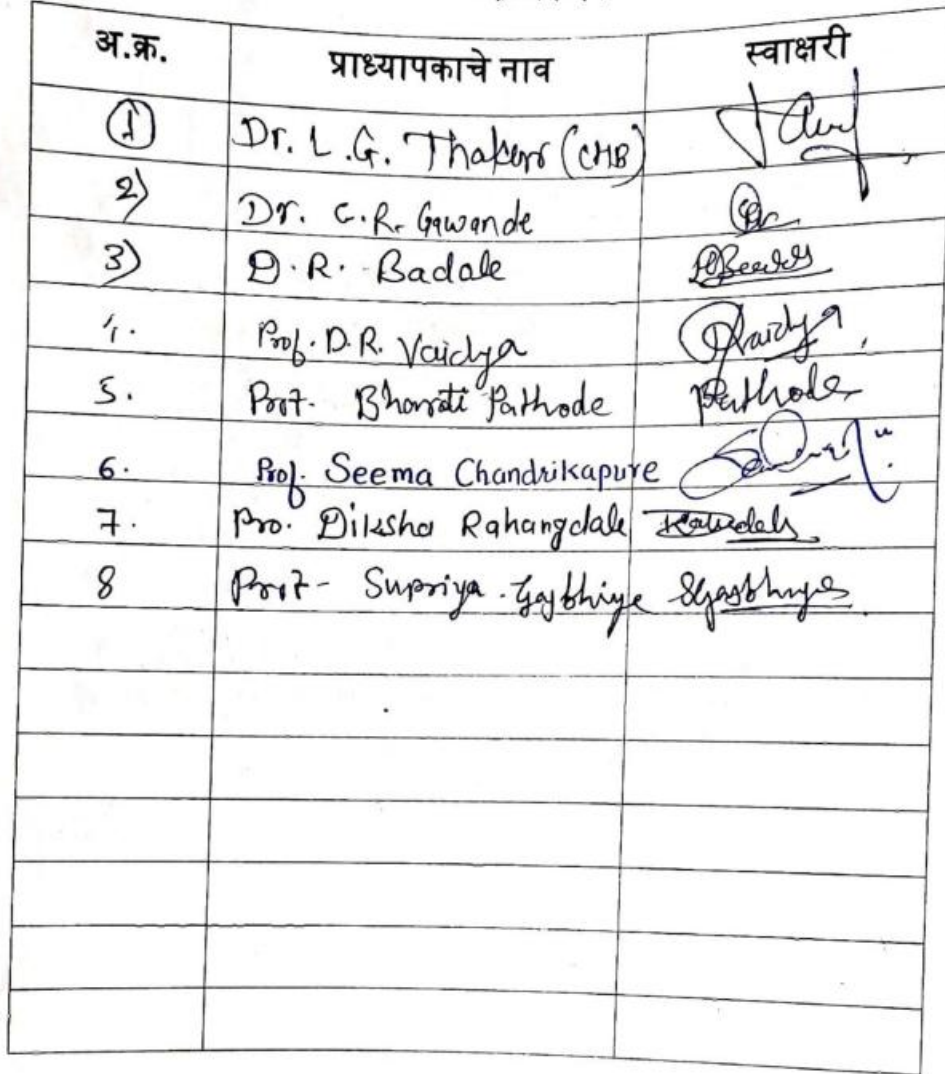 अ.क्र. प्राध्यापकाचे नाव स्वाक्षरी
1 Dr. L.G. (CHB)
2) Dr. C.R. Gawande
3) D.R. Badole
4. Prof. D.R. Vaidya Vaidya
5. Prof. Bharati Pathode Pathode
6. Prof. Seema Chandrikapure
7. Pro. Diksha Rahangdale
8 Prof- Supriya Gajbhiye